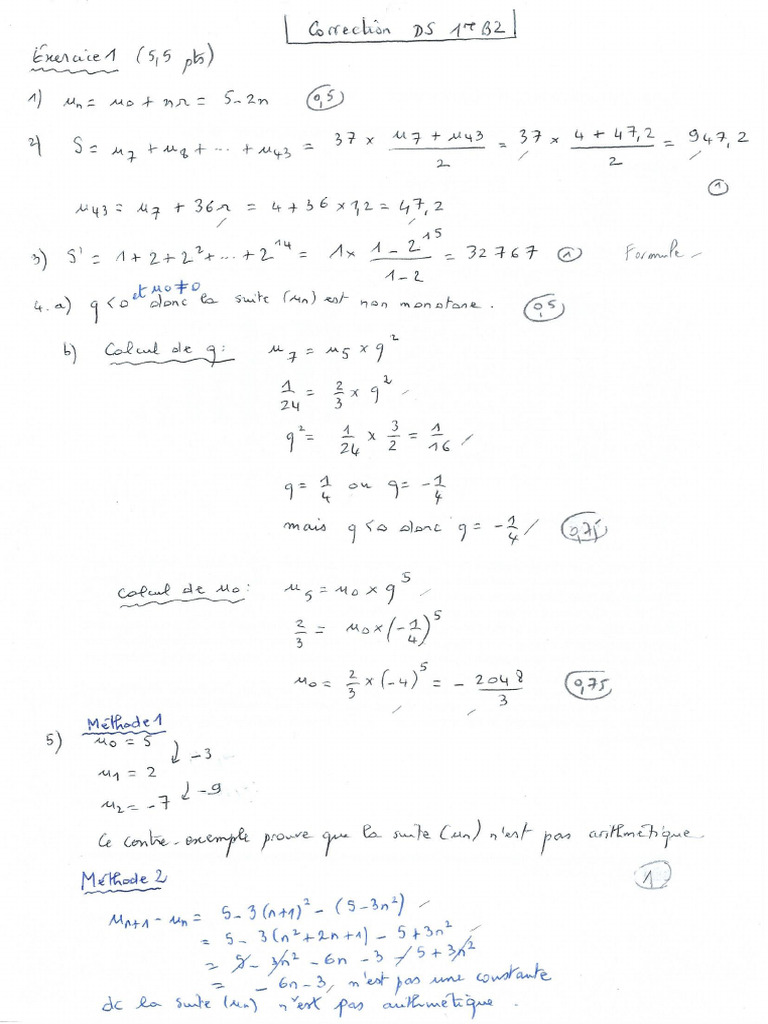 Correction DS 1re B2
Exercice 1 (5,5 pts)
1) un = u0 + nr = 5 - 2n 0,5
2) S = u7 + u8 + ... + u43 = 37 × (u7 + u43)/2 = 37 × (4 + 47,2)/2 = 947,2
1
u43 = u7 + 36r = 4 + 36 × 1,2 = 47,2
3) S' = 1 + 2 + 2² + ... + 2^14 = 1 × (1 - 2^15)/(1 - 2) = 32767 1 Formule
et u0 ≠ 0
4. a) q < 0 donc la suite (un) est non monotone. 0,5
b) Calcul de q: u7 = u5 × q²
1/24 = 2/3 × q²
q² = 1/24 × 3/2 = 1/16
q = 1/4 ou q = -1/4
mais q < 0 donc q = -1/4 0,75
Calcul de u0: u5 = u0 × q^5
2/3 = u0 × (-1/4)^5
u0 = 2/3 × (-4)^5 = - 2048/3 0,75
Méthode 1
5) u0 = 5
-3
u1 = 2
-9
u2 = -7
Ce contre-exemple prouve que la suite (un) n'est pas arithmétique.
Méthode 2 1
un+1 - un = 5 - 3(n+1)² - (5 - 3n²)
= 5 - 3(n² + 2n + 1) - 5 + 3n²
= 5 - 3n² - 6n - 3 - 5 + 3n²
= - 6n - 3, n'est pas une constante
dc la suite (un) n'est pas arithmétique.